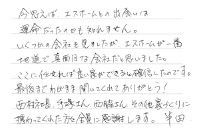 今思えば、エスホームとの出会いは
運命だったのかも知れません。
いくつかの会社を見ましたが、エスホームが一番
地道で真面目な会社だと思いました。
ここに任せれば良い家ができると確信したのです。
最後までわがまま聞いてくれてありがとう!
西村社長、西脇さん その他家づくりに
携わってくれた方々全員に感謝します。 半田